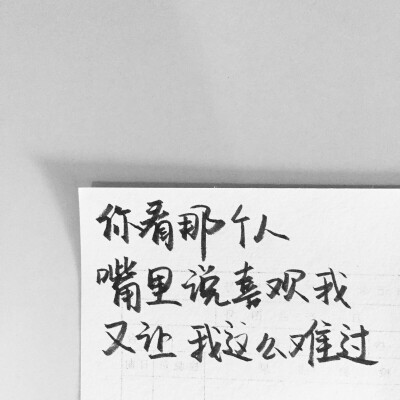 你看那个人
嘴里说喜欢我
又让我这么难过